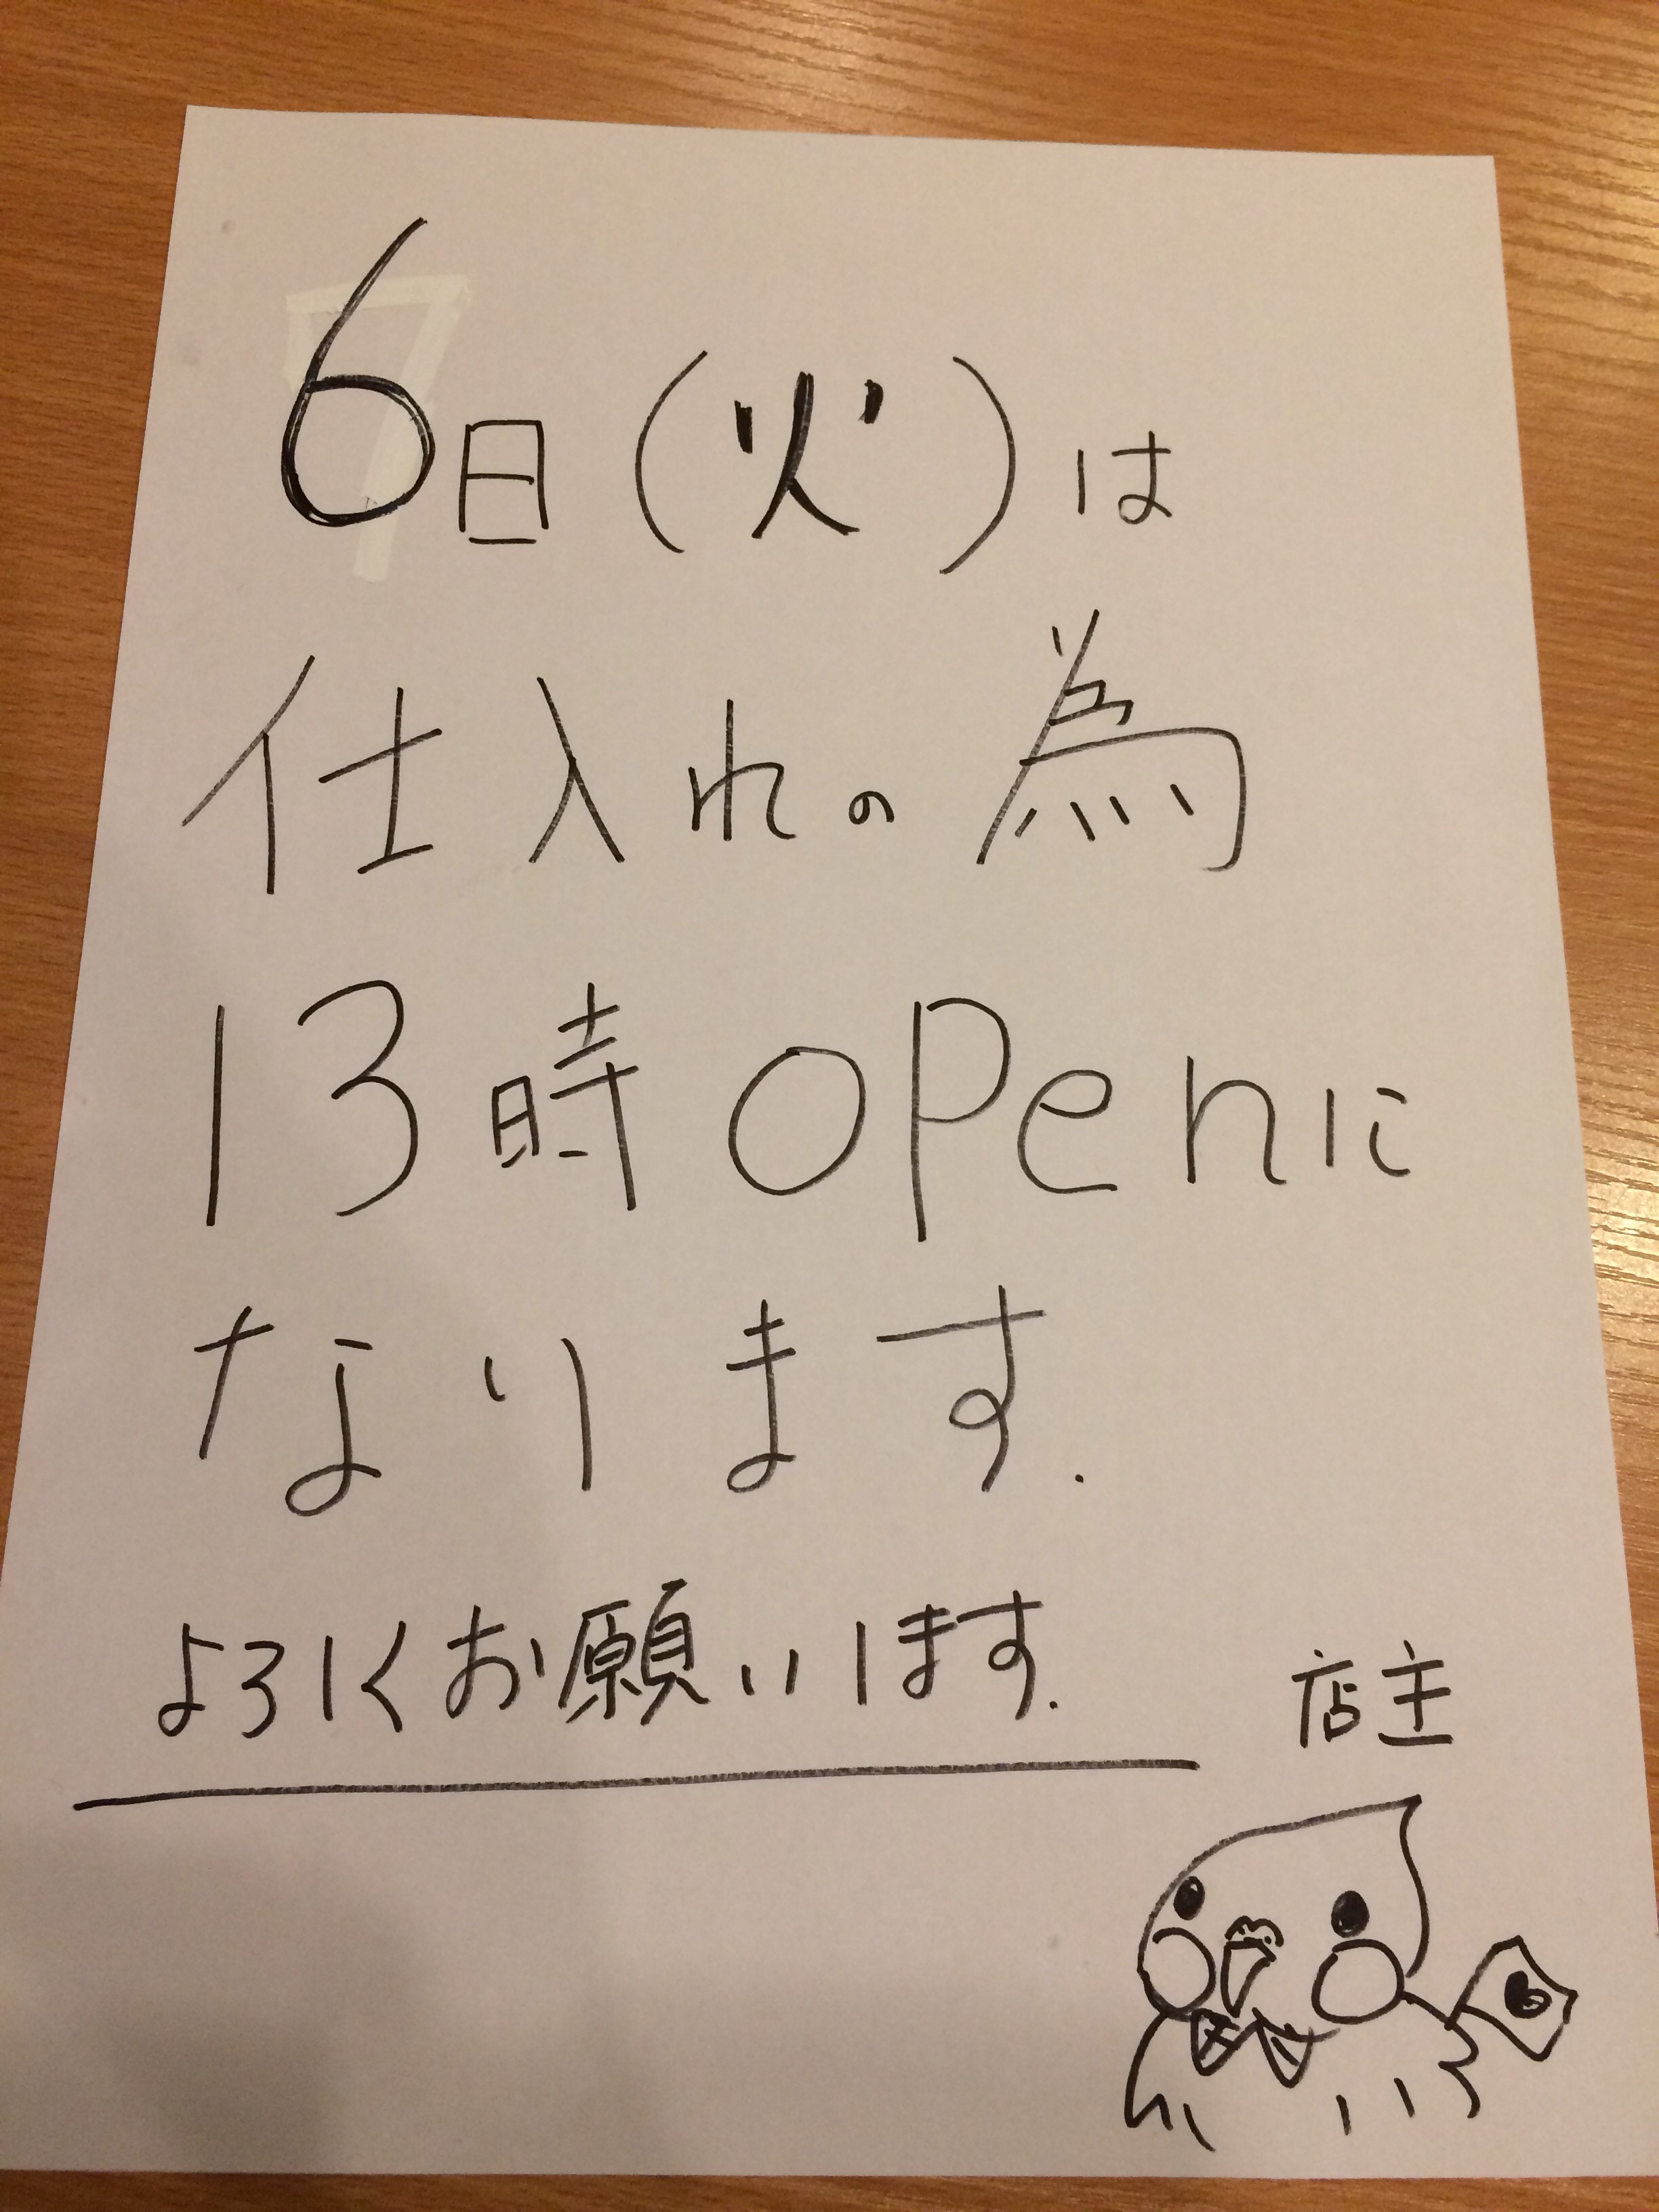 6日(火)は
仕入れの為
13時openに
なります.
よろしくお願いします.
店主